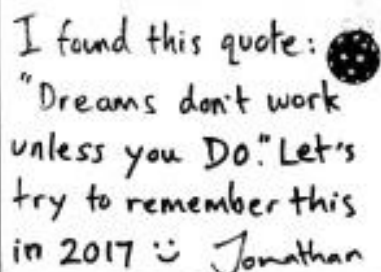 I found this quote:
"Dreams don't work
unless you Do." Let's
try to remember this
in 2017 :) Jonathan